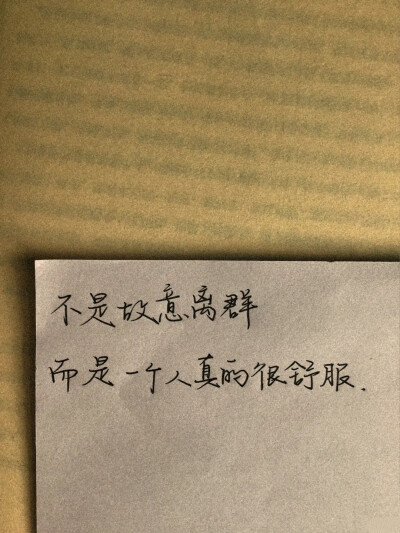 不是故意离群
而是一个人真的很舒服.